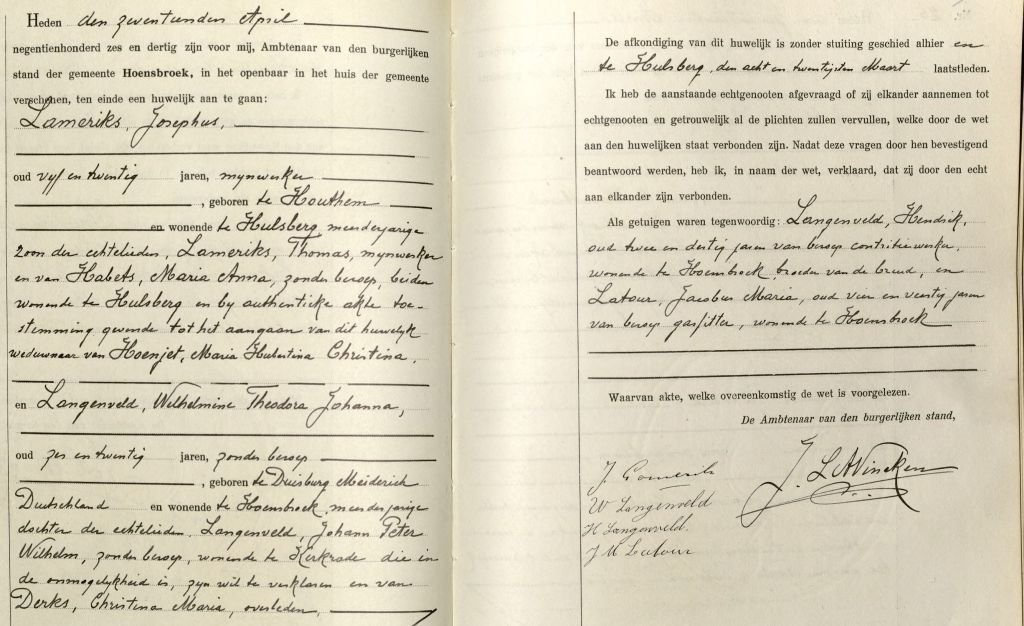 Heden den zeventienden April
negentienhonderd zes en dertig zijn voor mij, Ambtenaar van den burgerlijken
stand der gemeente Hoensbroek, in het openbaar in het huis der gemeente
verschenen, ten einde een huwelijk aan te gaan:
Lameriks, Josephus,
oud vyf en twentig jaren, mynwerker
, geboren te Houthem
en wonende te Hulsberg meerderjarige
zoon der echtelieden, Lameriks, Thomas, mynwerker
en van Habets, Maria Anna, zonder beroep, beiden
wonende te Hulsberg en by authentieke akte toe-
stemming gevende tot het aangaan van dit huwelyk
weduwnaar van Hoenjet, Maria Hubertina Christina,
en Langenveld, Wilhelmine Theodora Johanna,
oud zes en twentig jaren, zonder beroep
, geboren te Duisburg Meiderich
Duitschland en wonende te Hoensbroek, meerderjarige
dochter der echtelieden Langenveld, Johann Peter
Wilhelm, zonder beroep, wonende te Kerkrade die in
de onmogelykheid is, zyn wil te verklaren en van
Derks, Christina Maria, overleden,
De afkondiging van dit huwelijk is zonder stuiting geschied alhier en
te Hulsberg, den acht en twentigsten Maart laatstleden.
Ik heb de aanstaande echtgenooten afgevraagd of zij elkander aannemen tot
echtgenooten en getrouwelijk al de plichten zullen vervullen, welke door de wet
aan den huwelijken staat verbonden zijn. Nadat deze vragen door hen bevestigend
beantwoord werden, heb ik, in naam der wet, verklaard, dat zij door den echt
aan elkander zijn verbonden.
Als getuigen waren tegenwoordig: Langenveld, Hendrik,
oud twee en dertig jaren van beroep
wonende te Hoensbroek, broeder van de bruid, en
Latour, Jacobus Maria, oud vier en veertig jaren
van beroep gasfitter, wonende te Hoensbroek
Waarvan akte, welke overeenkomstig de wet is voorgelezen.
De Ambtenaar van den burgerlijken stand,
W Langenveld
H Langenveld.
J M Latour